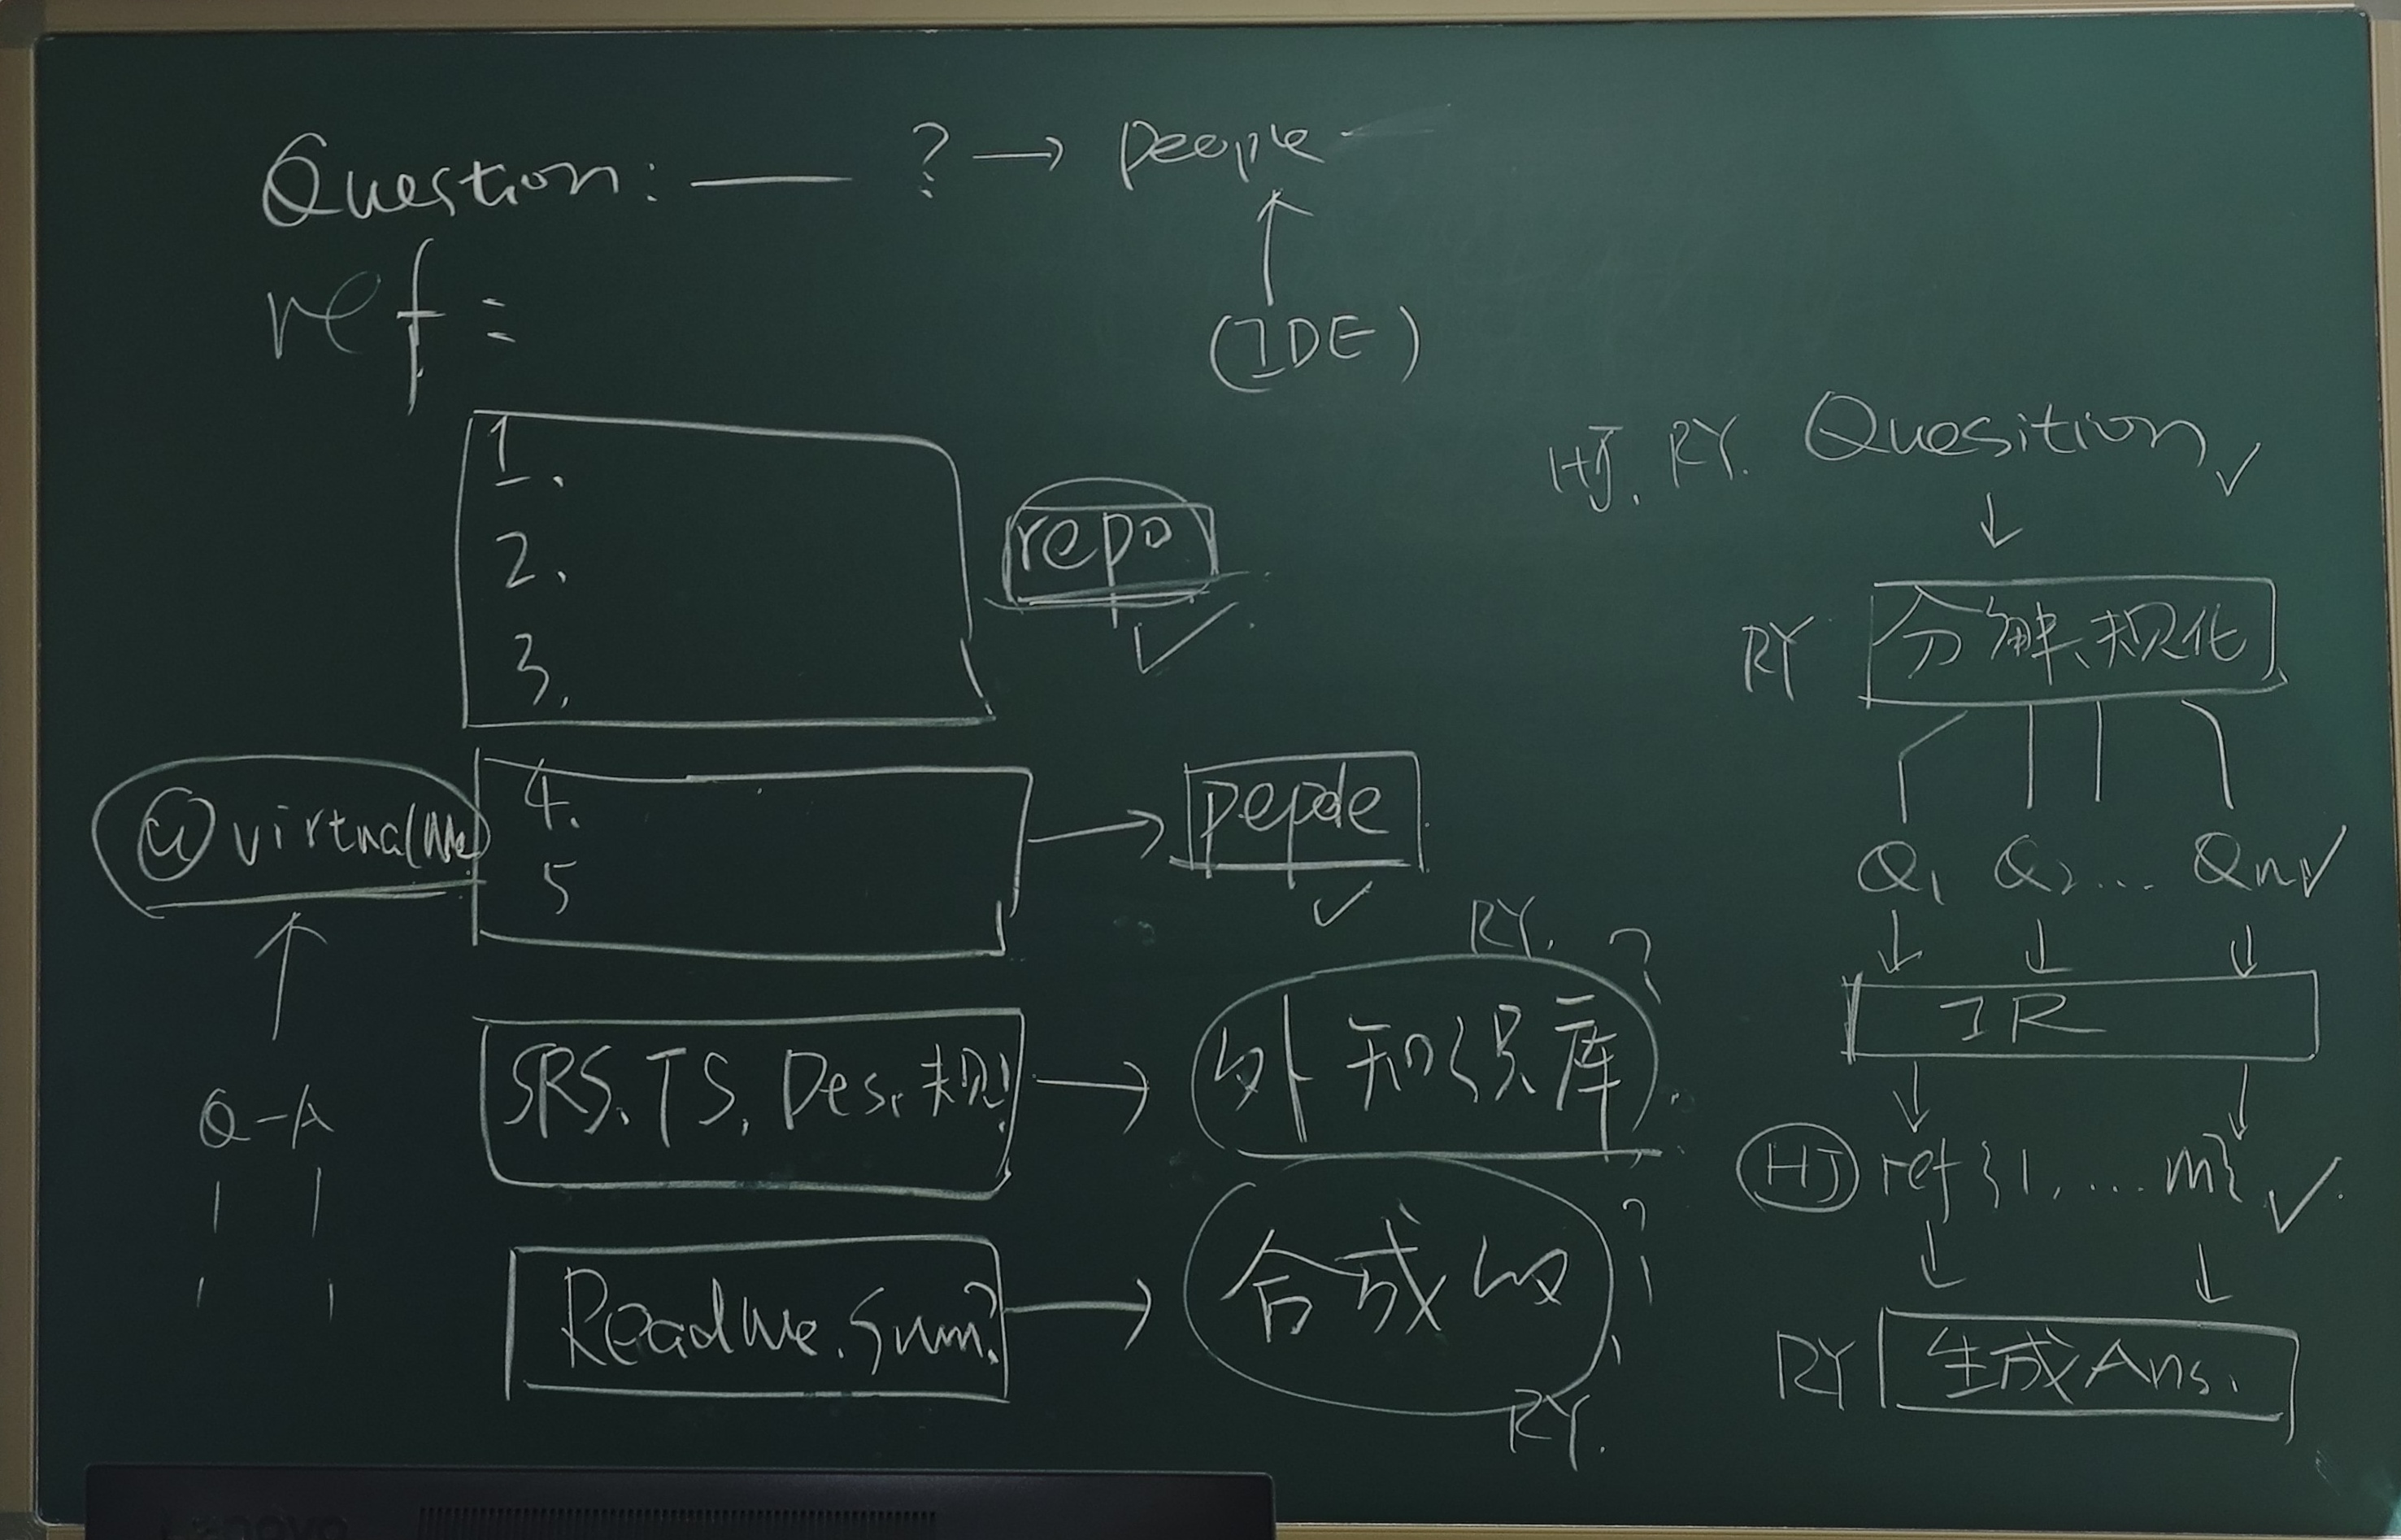 Question: —— ? → people
ref:
(IDE)
1.
2.
3.
repo
@virtualMe
4.
5
people
Q-A
SRS. TS. Des. 规
RY. ?
外知识库
ReadMe. Sum?
合成的
?
RY.
HJ. RY. Quesition
RY 分解、规化
Q1 Q2... Qn
IR
HJ ref{1, ... m}
RY 生成Ans.
Lenovo